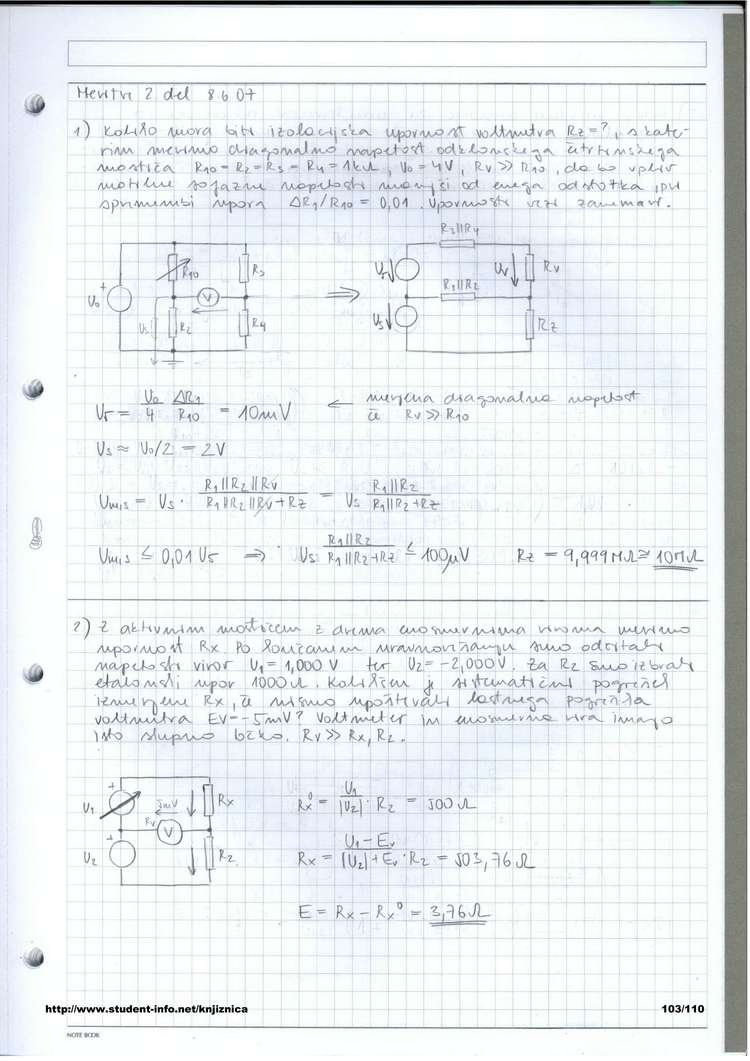 Meritve 2. del 8607
1) Koliko mora biti izolacijska upornost voltmetra Rz=?, s kate-
rim merimo diagonalno napetost odklonskega četrtinskega
mostiča R10 = R2 = R3 = R4 = 1kΩ, U0 = 4V, RV >> R10, da bo vpliv
motilne sofazne napetosti manjši od enega odstotka, pri
spremembi upora ΔR1/R10 = 0,01. Upornosti vezi zanemari.
R3||R4
U0 + R10 R3 V Us R2 R4
⇒
Ur Uv Rv R1||R2 Us Rz
Ur = U0/4 ΔR1/R10 = 10mV ← merjena diagonalna napetost
če Rv >> R10
Us ≈ U0/2 = 2V
Um,s = Us · R1||R2||Rv / R1||R2||Rv+Rz = Us R1||R2 / R1||R2+Rz
Um,s ≤ 0,01 Ur ⇒ Us R1||R2 / R1||R2+Rz ≤ 100μV Rz = 9,999MΩ ≅ 10MΩ
2) Z aktivnim mostičem z dvema enosmernima viroma merimo
upornost Rx. Po končanem uravnovešanju smo odčitali
napetosti virov U1 = 1,000 V ter U2 = -2,000V. Za R2 smo izbrali
etalonski upor 1000Ω. Kolikšen je sistematični pogrešek
izmerjene Rx, če nismo upoštevali lastnega pogreška
voltmetra EV = -5mV? Voltmeter in enosmerna vira imajo
isto skupno točko. RV >> Rx, R2.
U1 + 5mV Rv V Rx
U2 + R2
Rx⁰ = U1/|U2| · R2 = 500Ω
Rx = U1 - Ev / |U2| + Ev · R2 = 503,76Ω
E = Rx - Rx⁰ = 3,76Ω
http://www.student-info.net/knjiznica 103/110
NOTE BOOK